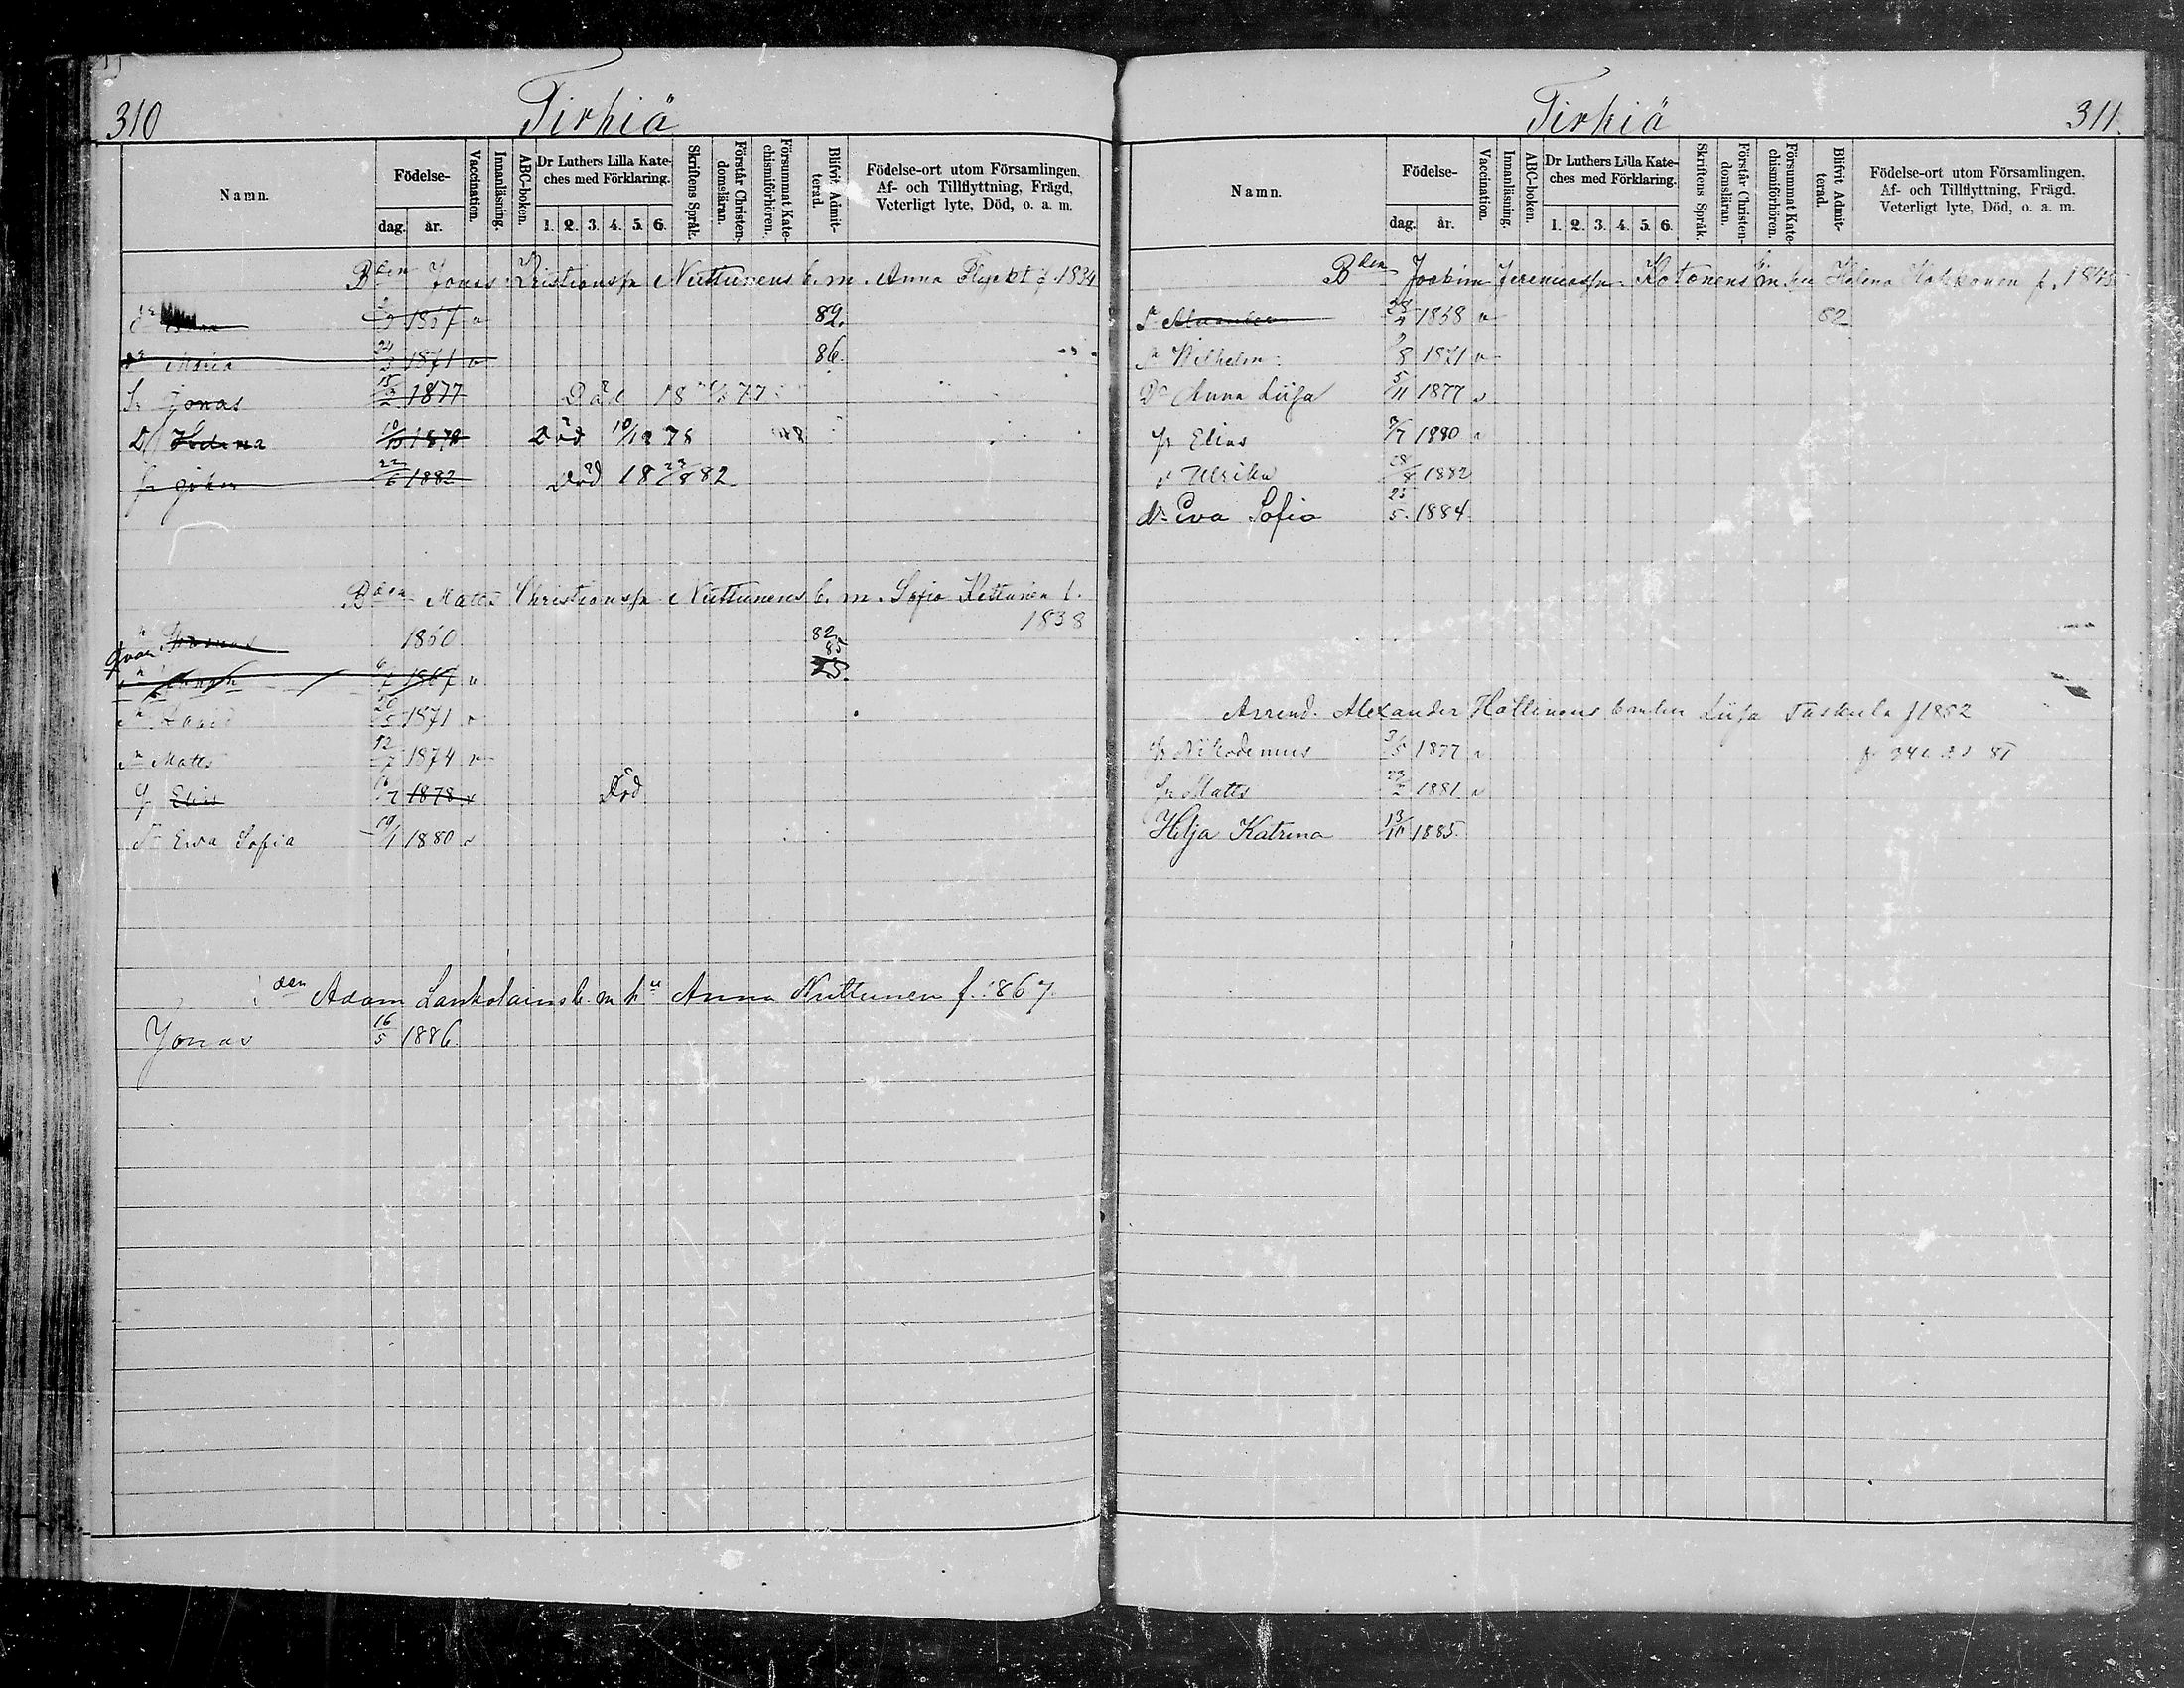 310
Tirkiä
Namn.
Födelse-
dag.
år.
Vaccination.
Innanläsning.
ABC-boken.
Dr Luthers Lilla Kate-
ches med Förklaring.
1. 2. 3. 4. 5. 6.
Skriftens Språk.
Förstår Christen-
domsläran.
Försummat Kate-
chismiförhören.
Blifvit Admit-
terad.
Födelse-ort utom Församlingen,
Af- och Tillflyttning, Frägd,
Veterligt lyte, Död, o. a. m.
Bden Jonas Kristianssn Nuttunens b. m. Anna Flyckt f 1834
1867 v 82.
Maria 24/3 1871 v 86.
Sn Jonas 15/2 1877 Död 18 77
Dr Helena 10/10 1878 Död 10/12 78
22/6 1882 Död 18 23/8 82
Bden Matts Christianssn Nuttunens b. m. Sofia Kettunen f.
1838
1860 82
85
1867 v
Sn David 20/5 1871 v
Sn Matts 12/7 1874 v
Elis 1878 v Död
Dr Ewa Sofia 19/1 1880 v
den Adam Lankolainens b. m hu Anna Nuttunen f. 1867.
Jonas 16/5 1886.
Tirkiä
311.
Namn.
Födelse-
dag.
år.
Vaccination.
Innanläsning.
ABC-boken.
Dr Luthers Lilla Kate-
ches med Förklaring.
1. 2. 3. 4. 5. 6.
Skriftens Språk.
Förstår Christen-
domsläran.
Försummat Kate-
chismiförhören.
Blifvit Admit-
terad.
Födelse-ort utom Församlingen,
Af- och Tillflyttning, Frägd,
Veterligt lyte, Död, o. a. m.
Bden Joakim Jeremiassn Kotonens b m hu Helena Kakkonen f. 1845
1868 v 82
Sn Wilhelm 1871 v
Dr Anna Liisa 5/11 1877 v
Sn Elias 1880 v
Ulrika 28/8 1882
Dr Eva Sofia 25/5 1884
Arrend. Alexander Hallinens b m hu Liisa Taskula f 1852
Sn Nikodemus 3/5 1877 v
Sn Matts 1881 v
Hilja Katrina 13/10 1885.